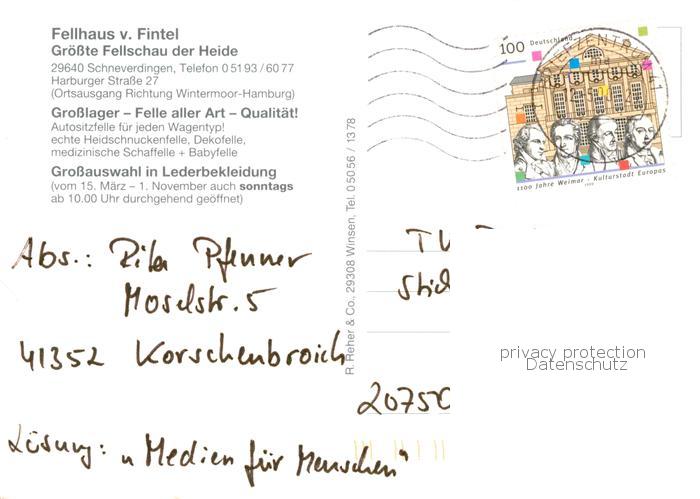 Fellhaus v. Fintel
Größte Fellschau der Heide
29640 Schneverdingen, Telefon 0 51 93 / 60 77
Harburger Straße 27
(Ortsausgang Richtung Wintermoor-Hamburg)
Großlager – Felle aller Art – Qualität!
Autositzfelle für jeden Wagentyp!
echte Heidschnuckenfelle, Dekofelle,
medizinische Schaffelle + Babyfelle
Großauswahl in Lederbekleidung
(vom 15. März – 1. November auch sonntags
ab 10.00 Uhr durchgehend geöffnet)
R. Reher & Co., 29308 Winsen, Tel. 0 50 56 / 13 78
100 Deutschland
1100 Jahre Weimar · Kulturstadt Europas
1999
Abs.: Rita Pfenner
Moselstr. 5
41352 Korschenbroich
Lösung: "Medien für Menschen"
20750
privacy protection
Datenschutz